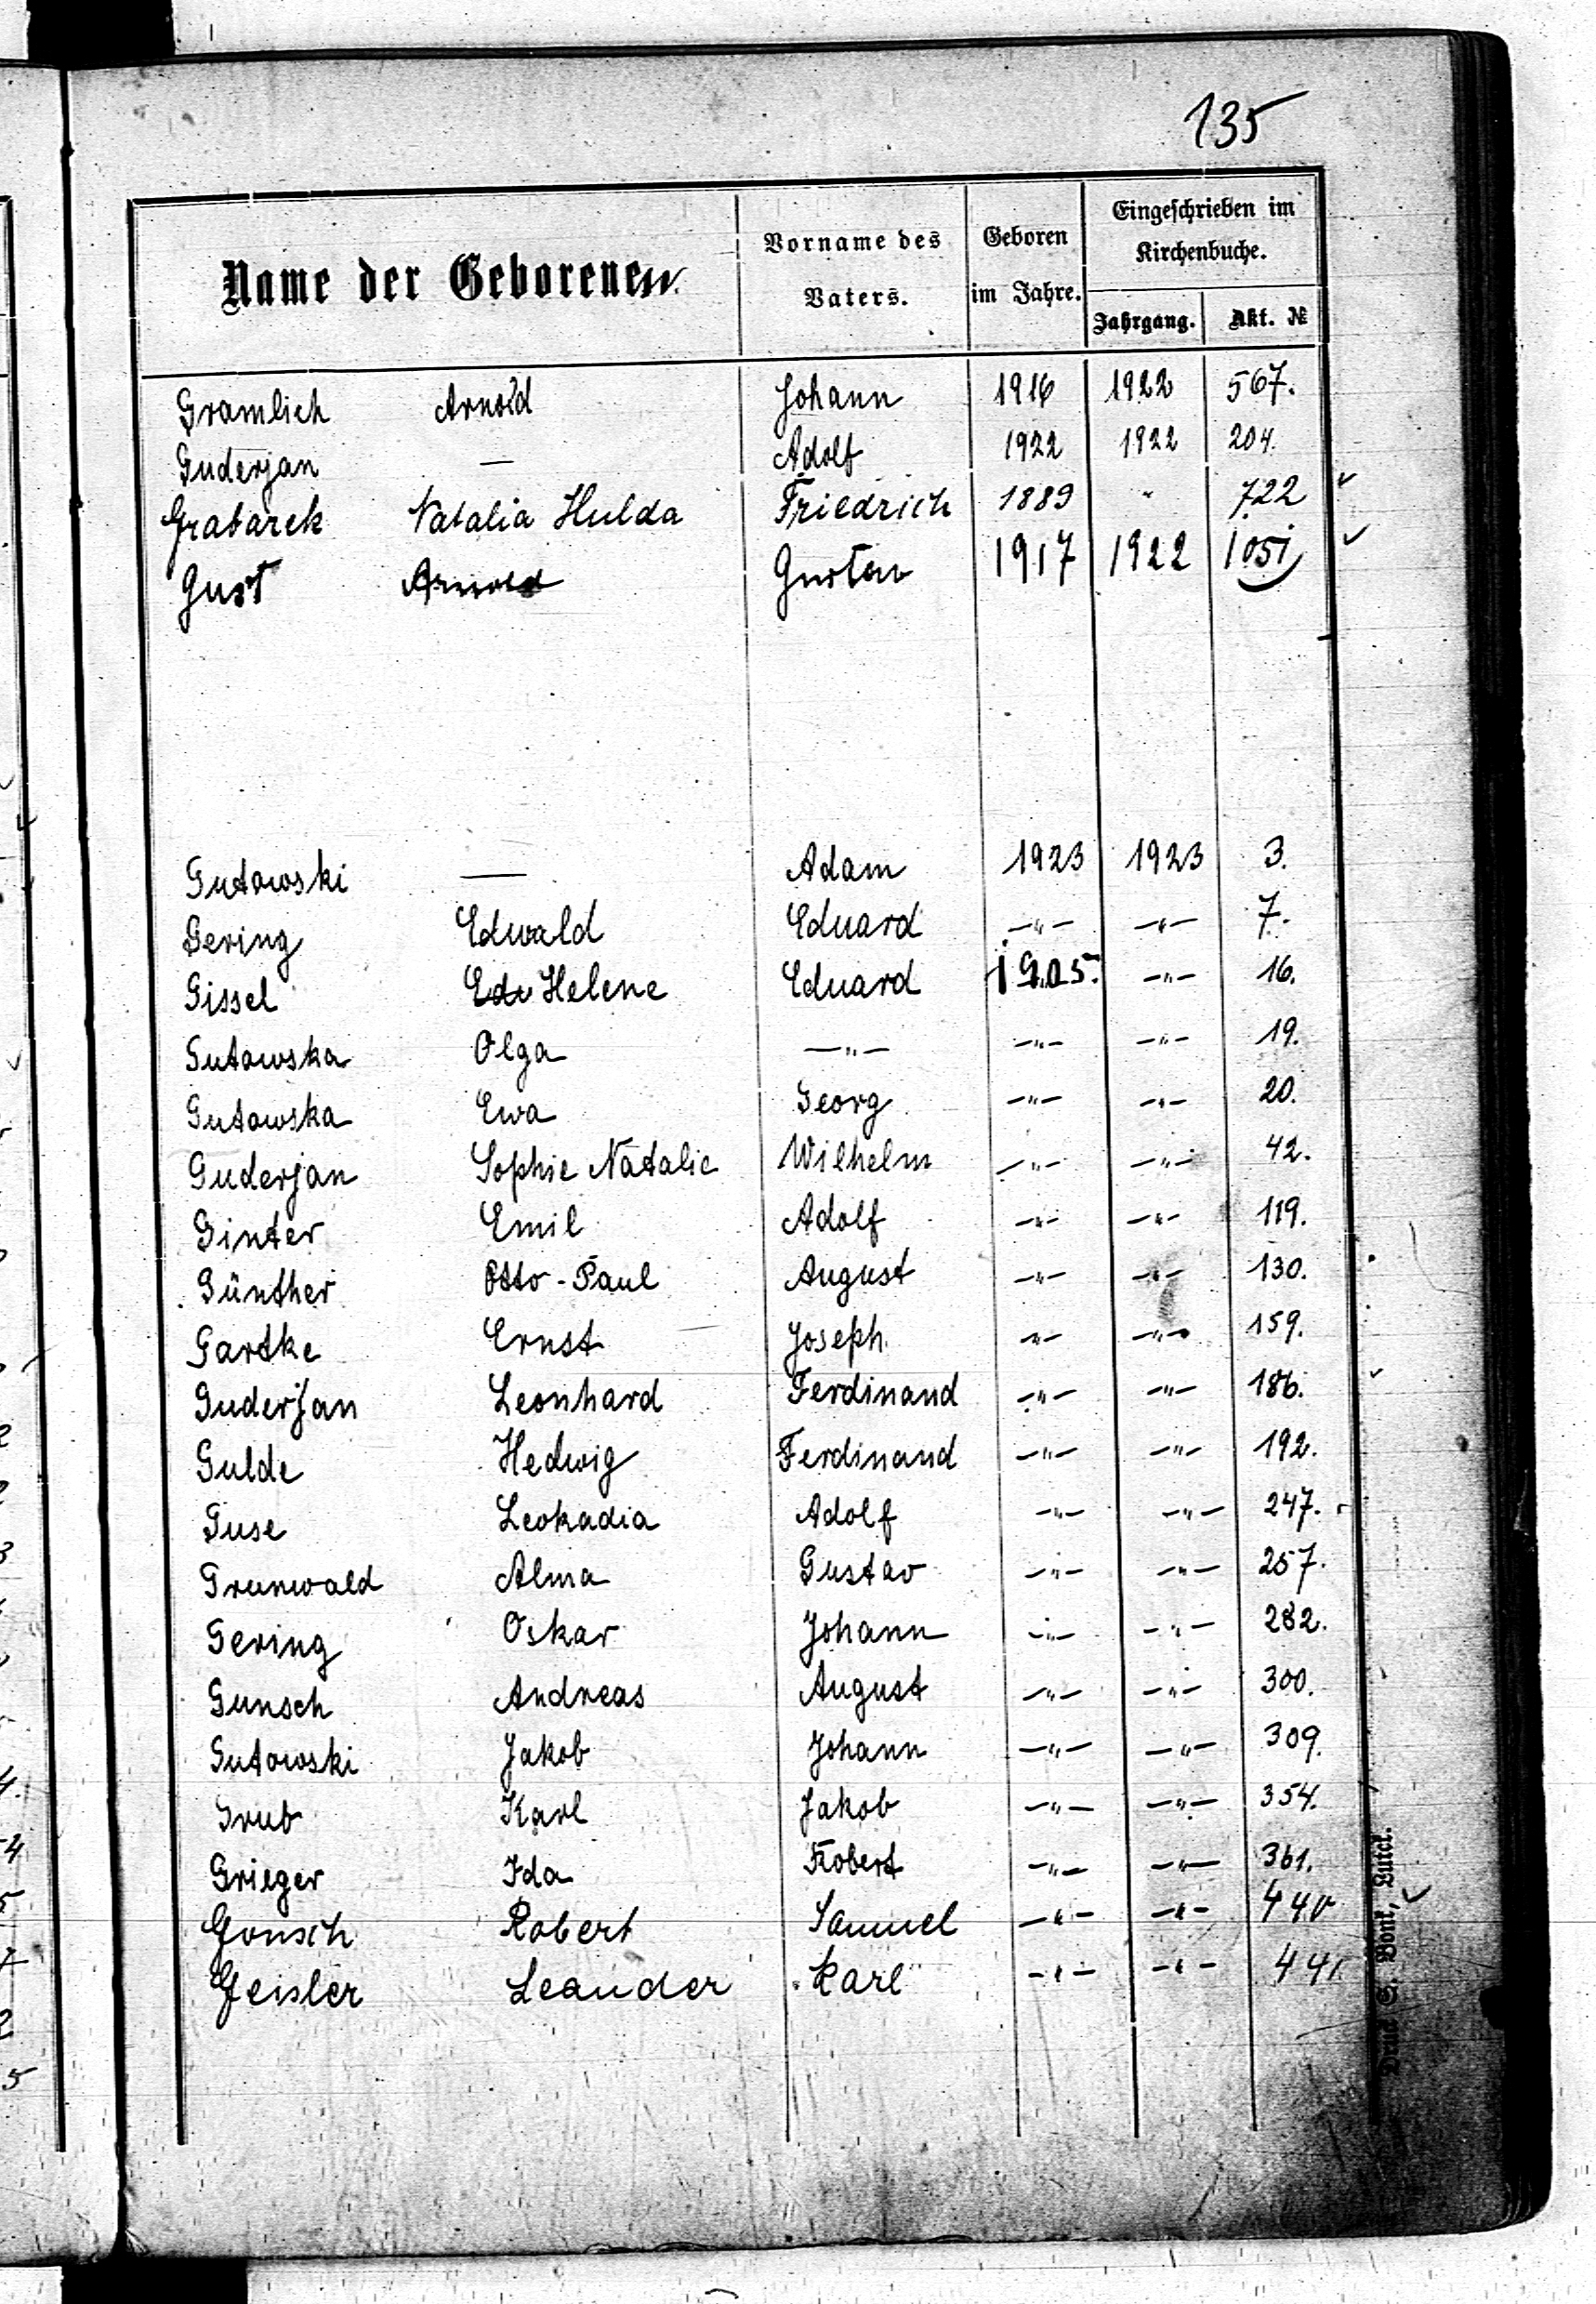 135
Name der Geborenen.
Vorname des Vaters.
Geboren im Jahre.
Eingeschrieben im Kirchenbuche.
Jahrgang. Akt. №
Gramlich Arnold Johann 1916 1922 567.
Guderjan — Adolf 1922 1922 204.
Grabarek Natalia Hulda Friedrich 1889 " 722 ✓
Gust Arnold Gustav 1917 1922 1051 ✓
Gutowski — Adam 1923 1923 3.
Gering Edwald Eduard —"— —"— 7.
Gissel Edv Helene Eduard 1905. —"— 16.
Gutowska Olga —"— —"— —"— 19.
Gutowska Ewa Georg —"— —"— 20.
Guderjan Sophie Natalie Wilhelm —"— —"— 42.
Ginter Emil Adolf —"— —"— 119.
Günther Otto-Paul August —"— —"— 130.
Gartke Ernst Joseph —"— —"— 159.
Guderjan Leonhard Ferdinand —"— —"— 186.
Gulde Hedwig Ferdinand —"— —"— 192.
Guse Leokadia Adolf —"— —"— 247.
Grunwald Alma Gustav —"— —"— 257.
Gering Oskar Johann —"— —"— 282.
Gunsch Andreas August —"— —"— 300.
Gutowski Jakob Johann —"— —"— 309.
Grub Karl Jakob —"— —"— 354.
Grieger Ida Robert —"— —"— 361.
Gonsch Robert Samuel —"— —"— 440 ✓
Geisler Leander Karl —"— —"— 441
Druck S. Bonk, Luck.